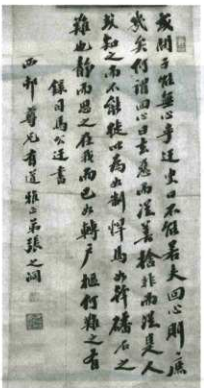 或問子能無心乎迂叟曰不能若夫回心則庶
幾矣何謂回心曰去惡而從善捨非而從是人
或知之而不能徙以為如制悍馬如斡磻石之
難也靜而思之在我而已如轉戶樞何難之有
錄司馬公迂書
西邨尊兄有道雅正弟張之洞